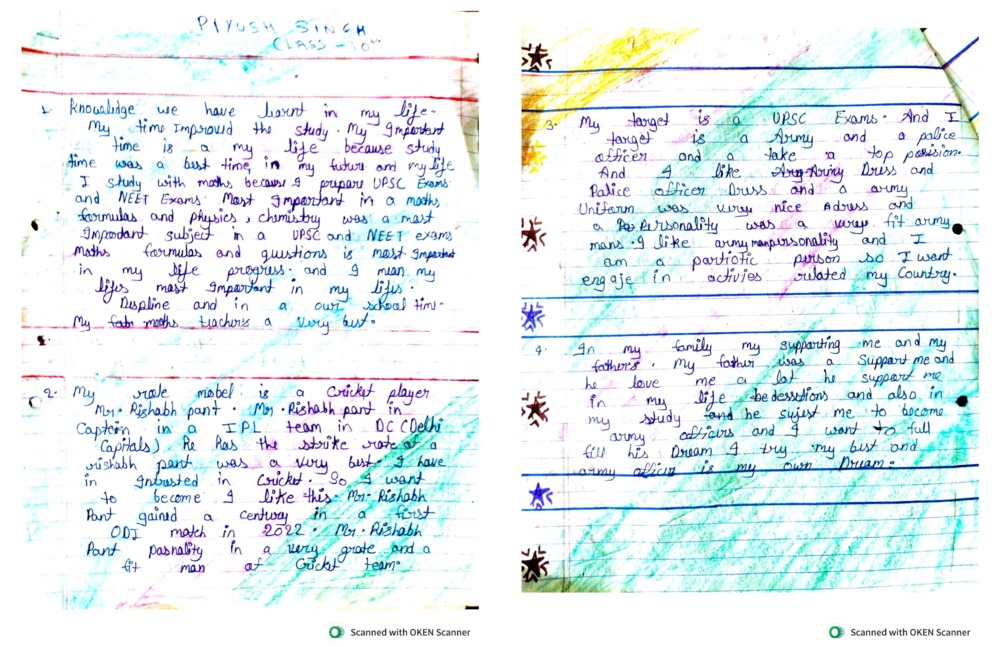 PIYUSH SINGH
CLASS - 10th
1. Knowlidge we have learnt in my life.
My time Improvd the study. My Important
time is a my life because study
time was a best time, in my futur and my life
I study with maths becaus I prepare UPSC Exams
and NEET Exams. Most Important in a maths
formulas and physics, chemistry was a most
Important subject in a UPSC and NEET exams
maths formulas and questions is most Important
in my life progress. and I mean my
lifes most Important in my lifes.
Displine and in a our school time.
My maths teachers a very best.
2. My role mobel is a Cricket player
Mr. Rishabh pant. Mr. Rishabh pant in
Captein in a IPL team in DC (Delhi
Capitals) he has the strike rate of a
rishabh pant was a very best. I have
in Intrasted in Cricket. So I want
to become I like this. Mr. Rishabh
Pant gained a century in a first
ODI match in 2022. Mr. Rishabh
Pant pasnality in a very grate and a
fit man of Crickt team.
Scanned with OKEN Scanner
3. My target is a UPSC Exams. And I
target is a Army and a police
officer and a take a top posision.
And I like Army Dress and
Police officer Dress and a army
Uniform was very nice Adress and
a Personality was a very fit army
mans. I like army man personality and I
am a partiotic person so I want
engaje in activies related my Country.
4. In my family my supporting me and my
fathers. My father was a Support me and
he love me a lot he support me
in my life bedesstions and also in
my study and he sujest me to become
army officers and I want to full
fill his Dream I try my best and
army officer is my own Dream.
Scanned with OKEN Scanner